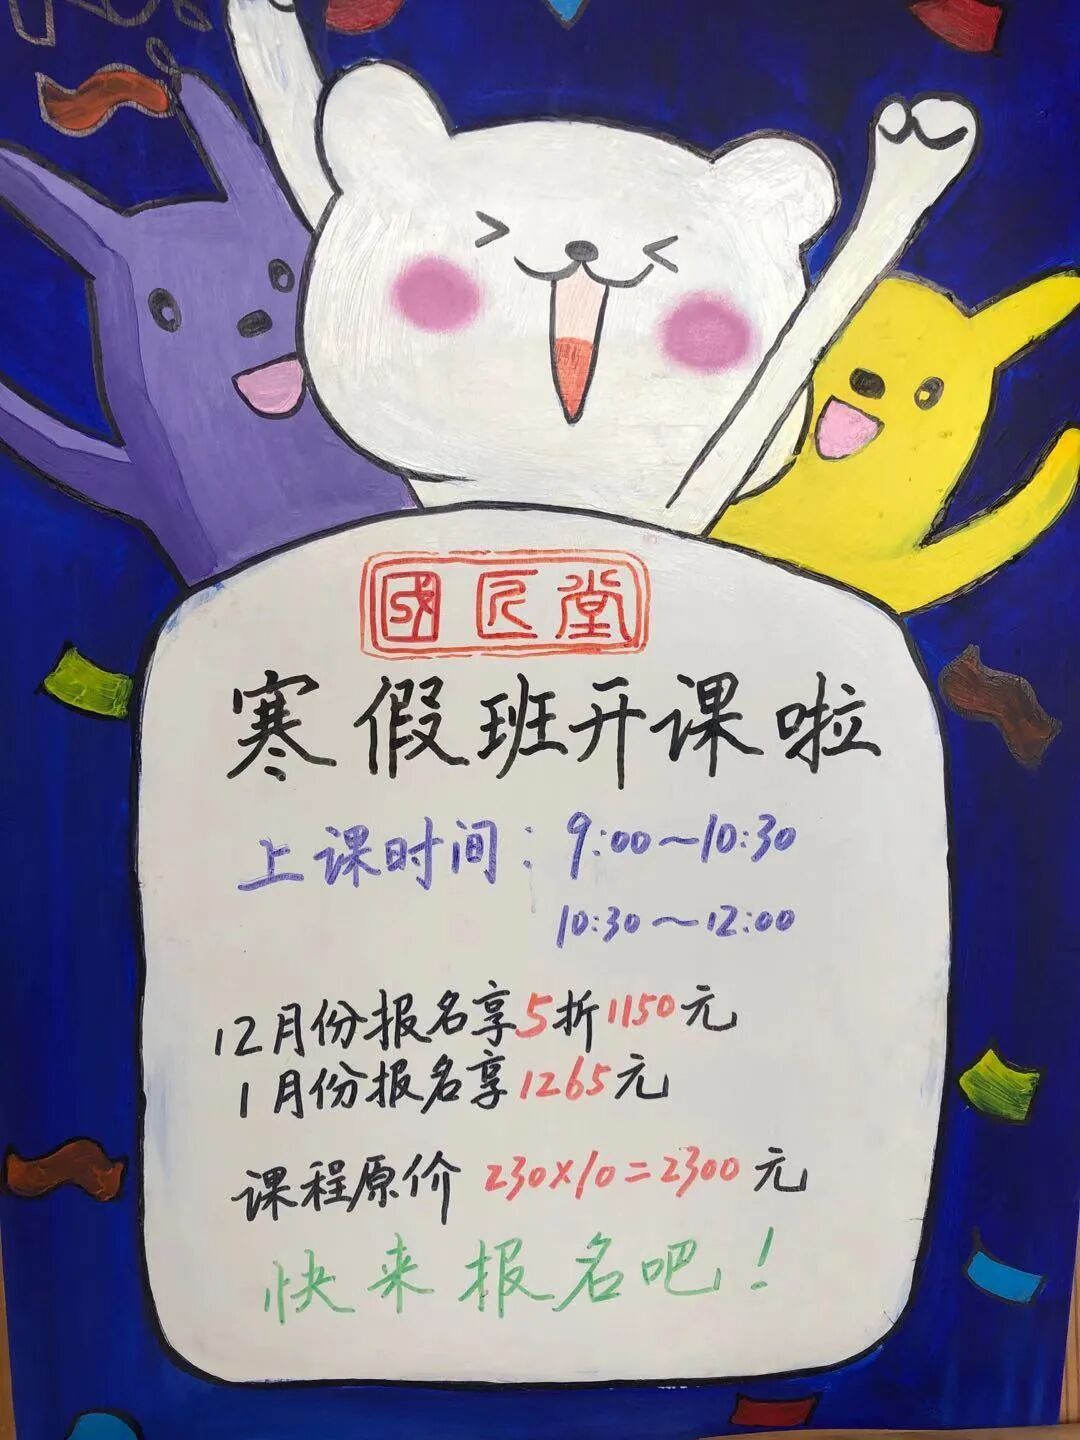 國匠堂
寒假班开课啦
上课时间：9:00～10:30
10:30～12:00
12月份报名享5折1150元
1月份报名享1265元
课程原价 230×10=2300元
快来报名吧！